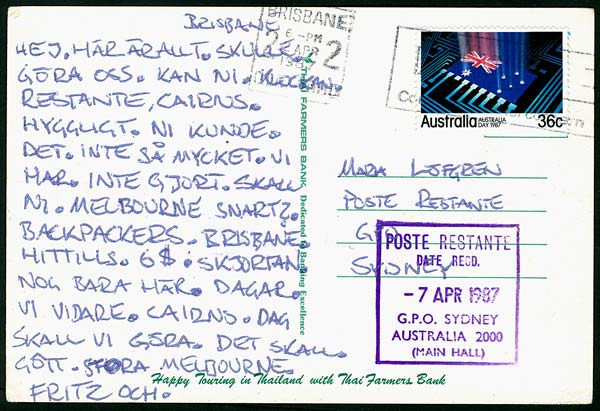 BRISBANE
HEJ. HÄR ÄR ALLT. SKULLE.
GÖRA OSS. KAN NI. KLOCKAN.
RESTANTE, CAIRNS.
HYGGLIGT. NI KUNDE.
DET. INTE SÅ MYCKET. VI
HAR. INTE GJORT. SKALL
NI. MELBOURNE SNART?.
BACKPACKERS. BRISBANE.
HITTILLS. 6$. SKJORTAN
NOG BARA HÄR. DAGAR.
VI VIDARE. CAIRNS. DAG
SKALL VI GÖRA. DET SKALL.
GÔTT. STORA MELBOURNE.
FRITZ OCH.
THAI FARMERS BANK Dedicated to Banking Excellence
BRISBANE
6-PM
APR
2
Australia
AUSTRALIA
DAY 1987
36c
MARIA LÖFGREN
POSTE RESTANTE
GPO
SYDNEY
POSTE RESTANTE
DATE RECD.
-7 APR 1987
G.P.O. SYDNEY
AUSTRALIA 2000
(MAIN HALL)
Happy Touring in Thailand with Thai Farmers Bank